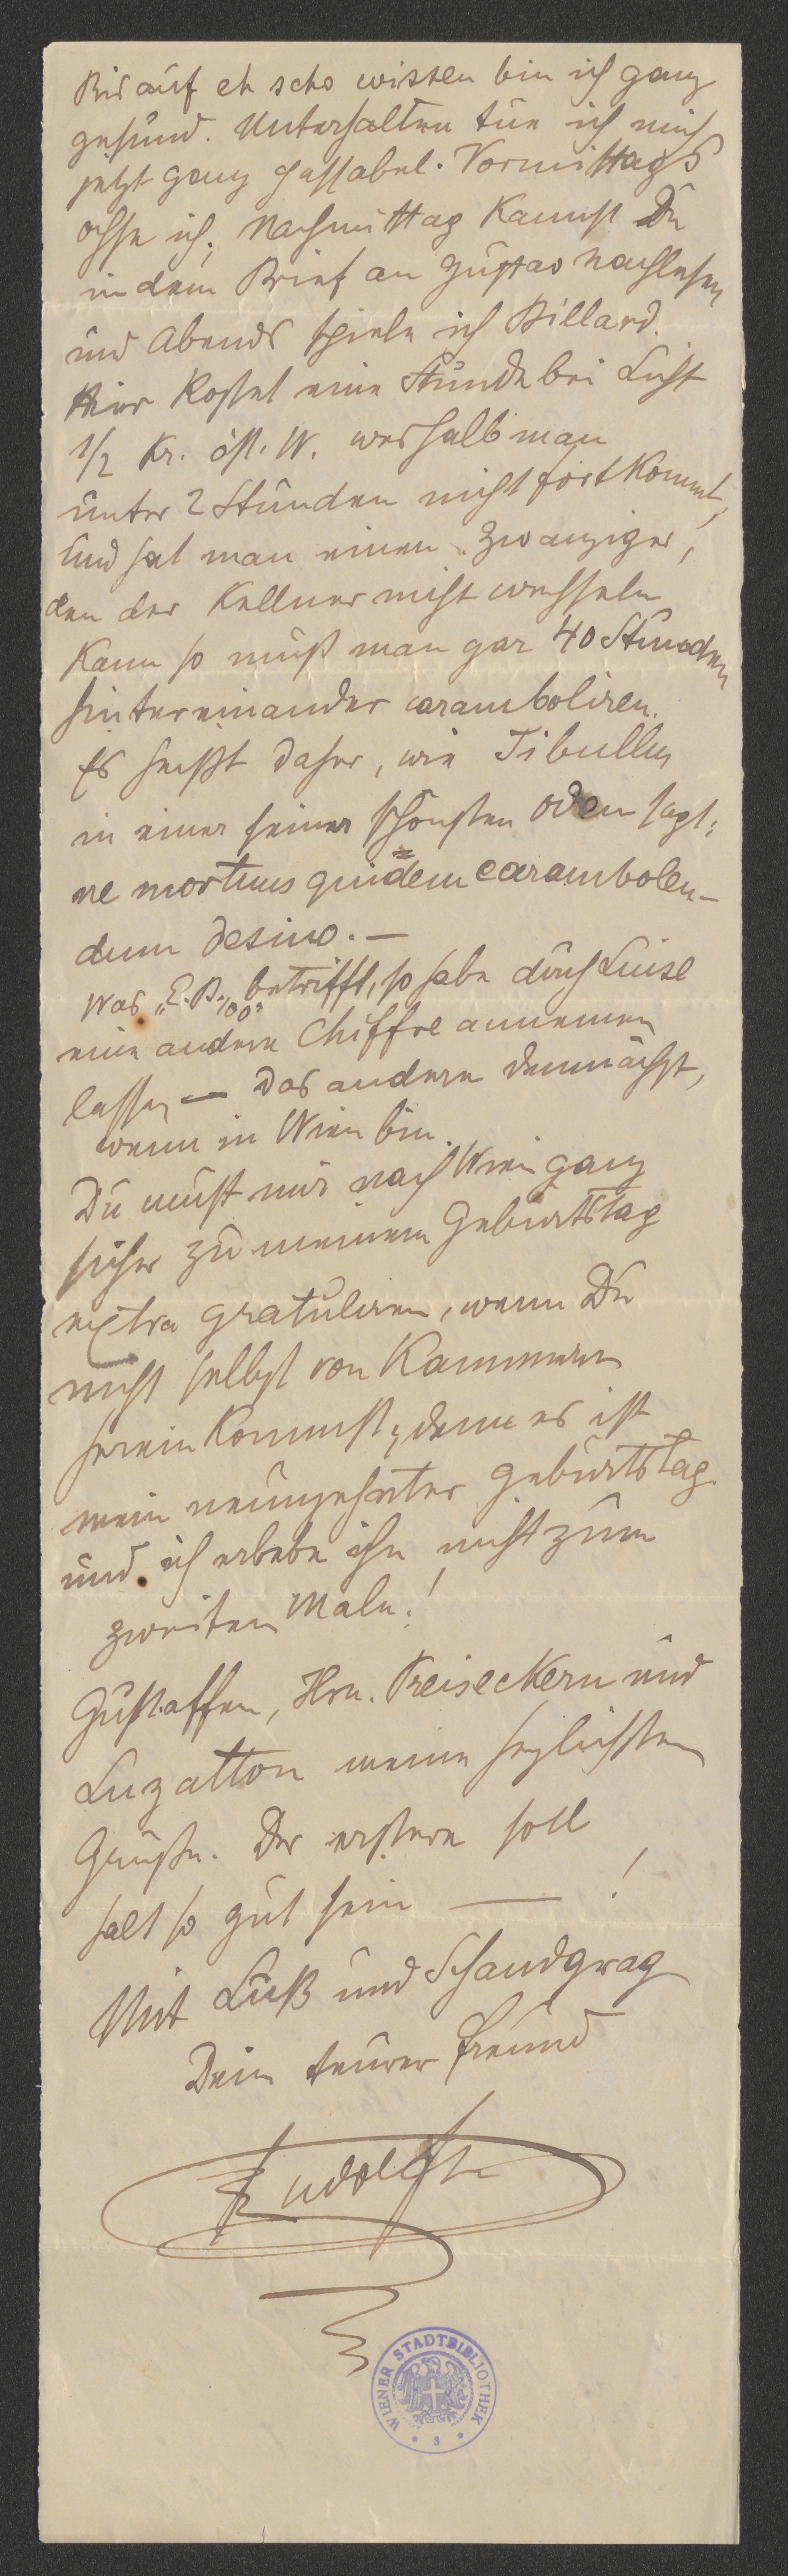 Bis auf eh scho wissen bin ich ganz
gesund. Unterhalten tue ich mich
jetzt ganz passabel. Vormittags
ochse ich; Nachmittag kannst Du
in dem Brief an Gustav nachlesen
und Abends spiele ich Billard.
Hier kostet eine Stunde bei Licht
1/2 Kr. öst. W. weshalb man
unter 2 Stunden nicht fortkommt,
und hat man einen Zwanziger,
den der Kellner nicht wechseln
kann so muß man gar 40 Stunden
hintereinander caramboliren.
Es heißt daher, wie Tibullus
in einer seiner schönsten Oden sagt:
ne mortuus quidem carambolen-
dum desino. —
Was „E. B. 100“ betrifft, so habe durch Luise
eine andere Chiffre annemen
lassen — das andere demnächst,
wenn in Wien bin.
Du mußt mir nach Wien ganz
sicher zu meinem Geburtstag
extra gratuliren, wenn Du
nicht selbst von Kammern
herein kommst; denn es ist
mein neunzehnter Geburtstag
und ich erlebe ihn nicht zum
zweiten Male!
Gustaffen, Hrn. Preiseckern und
Luzatton meine herzlichsten
Grüße. Der erstere soll
halt so gut sein — !
Mit Luß und Schandgrag
Dein teurer Freund
Rudolf
WIENER STADTBIBLIOTHEK